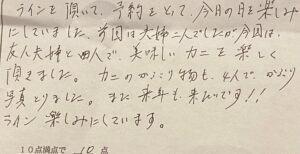 ラインを頂いて、予約をとって、今日の日を楽しみ
にしていました。前回は夫婦二人でしたが今回は、
友人夫婦と四人で、美味しいカニを楽しく
頂きました。カニのかぶり物も、4人で、かぶり
写真とりました。また来年も来たいです!!
ライン楽しみにしています。
10点満点で 10 点